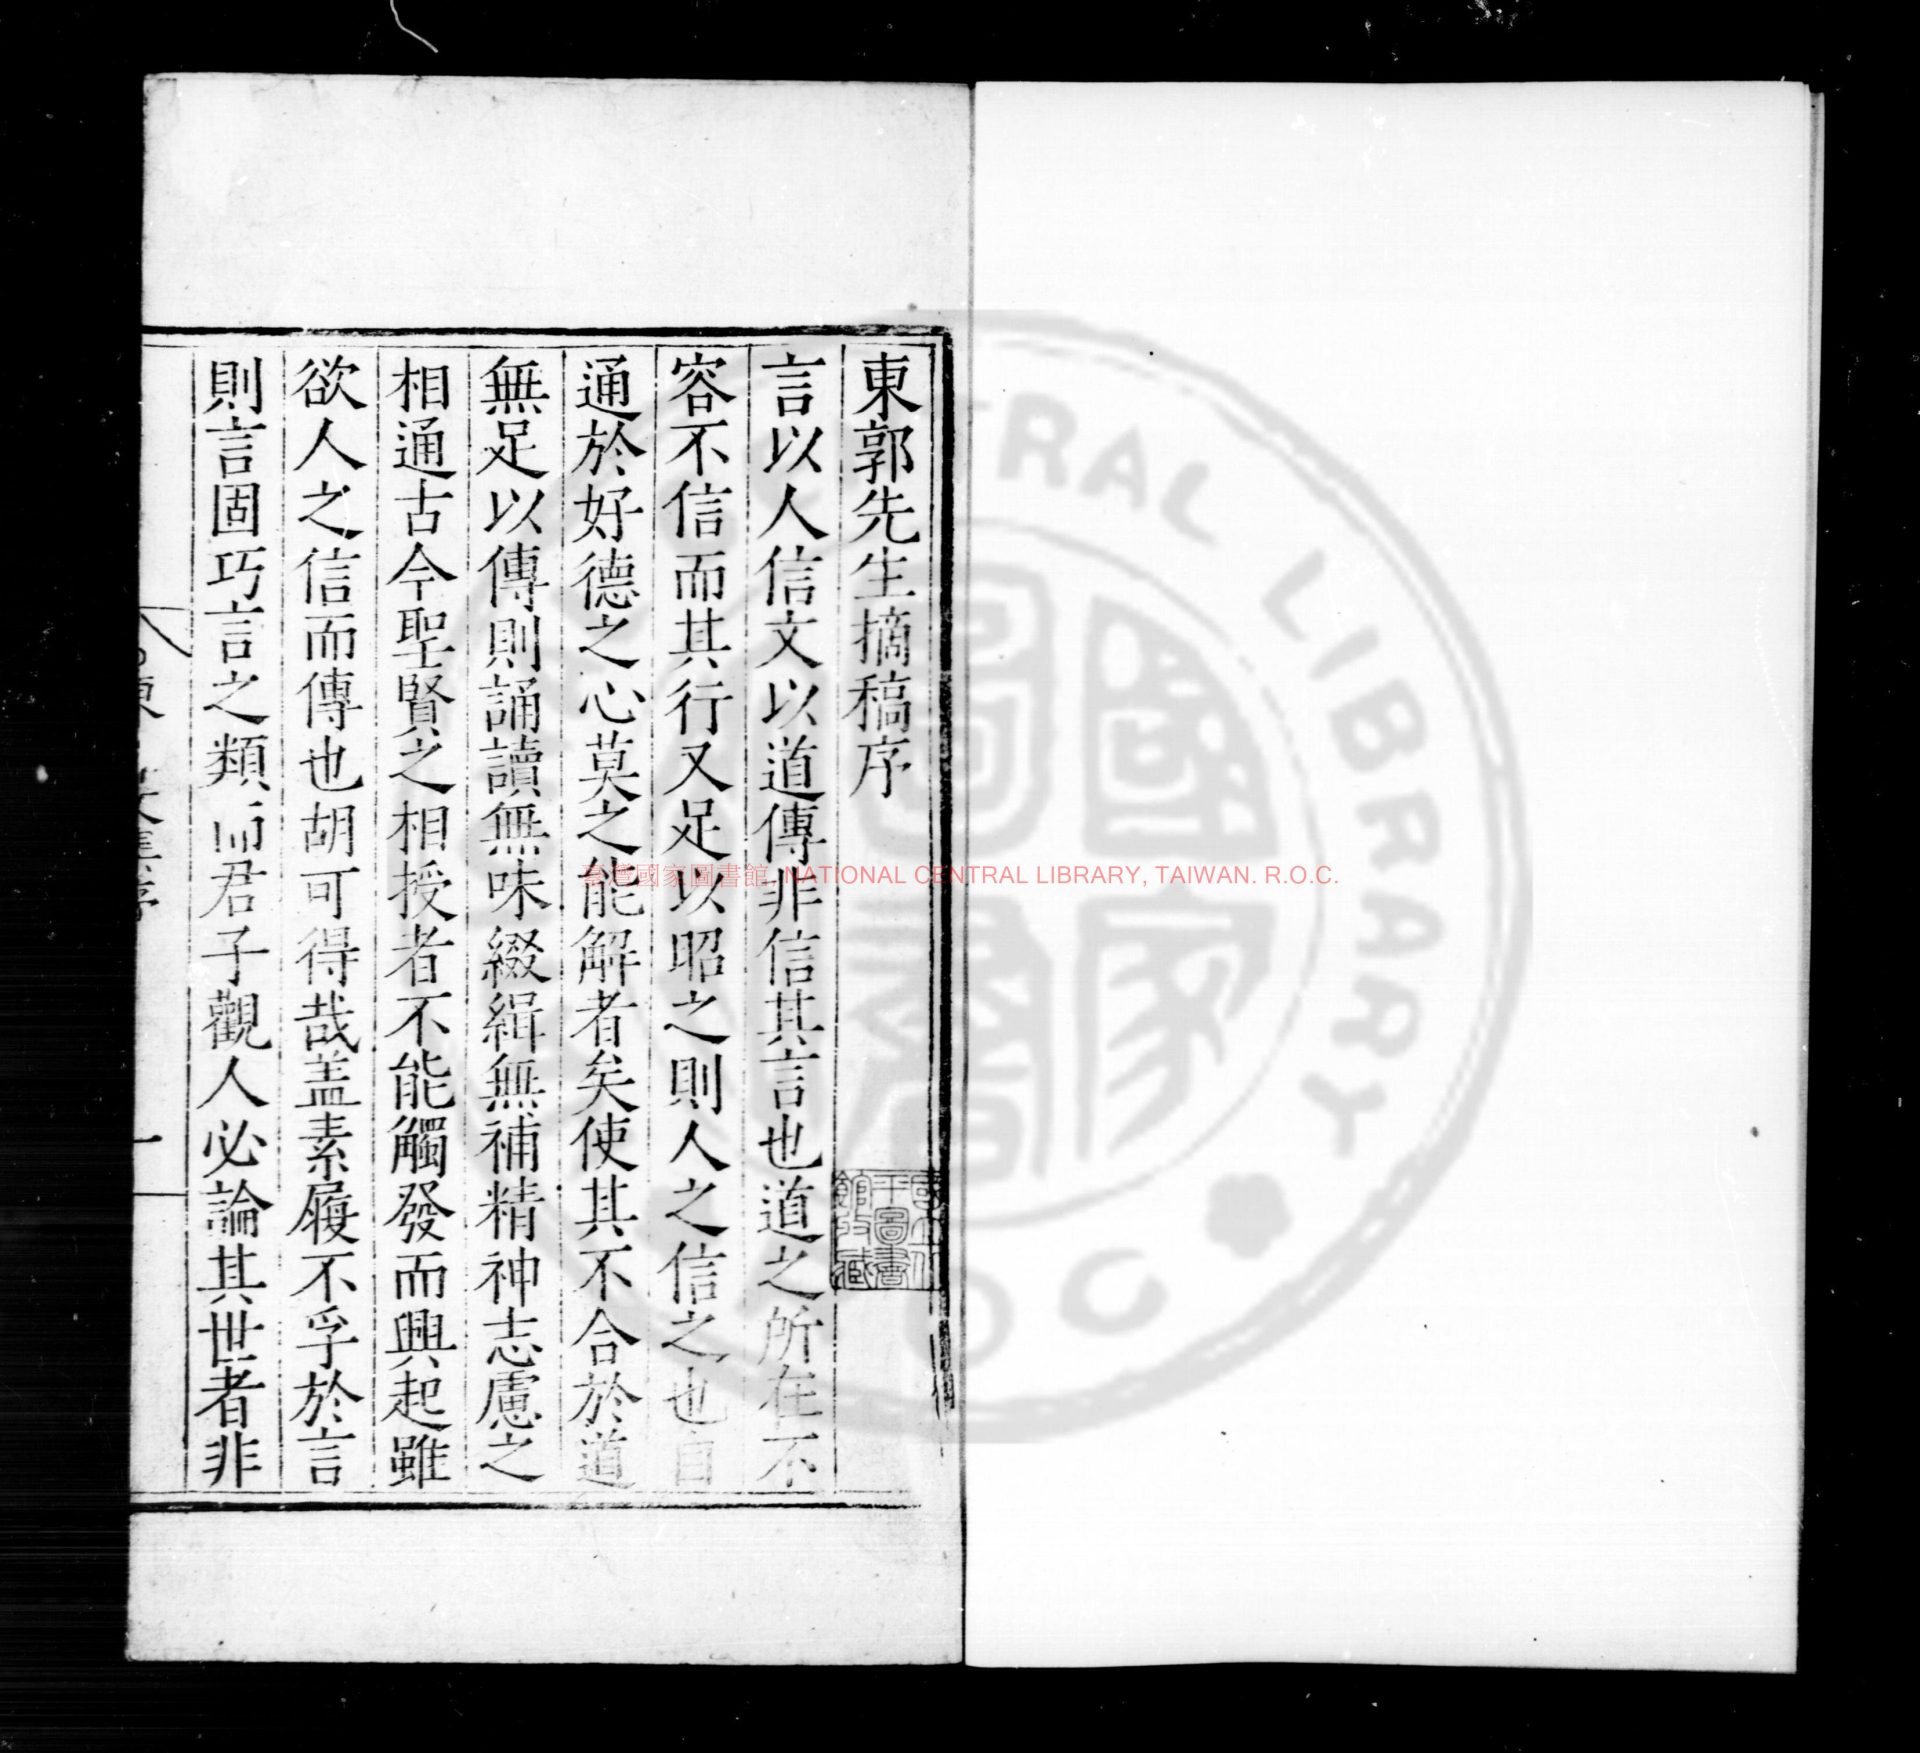 東郭先生摘稿序
言以人信文以道傳非信其言也道之所在不
容不信而其行又足以昭之則人之信之也自
通於好德之心莫之能解者矣使其不合於道
無足以傳則誦讀無味綴緝無補精神志慮之
相通古今聖賢之相授者不能觸發而興起雖
欲人之信而傳也胡可得哉盖素履不孚於言
則言固巧言之類而君子觀人必論其世者非
臺灣國家圖書館, NATIONAL CENTRAL LIBRARY, TAIWAN. R.O.C.